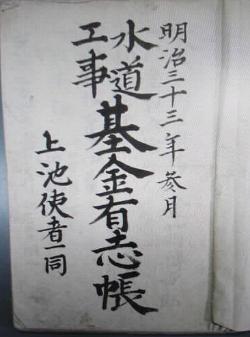 明治三十三年参月
水道
工事
基金有志帳
上池使者一同